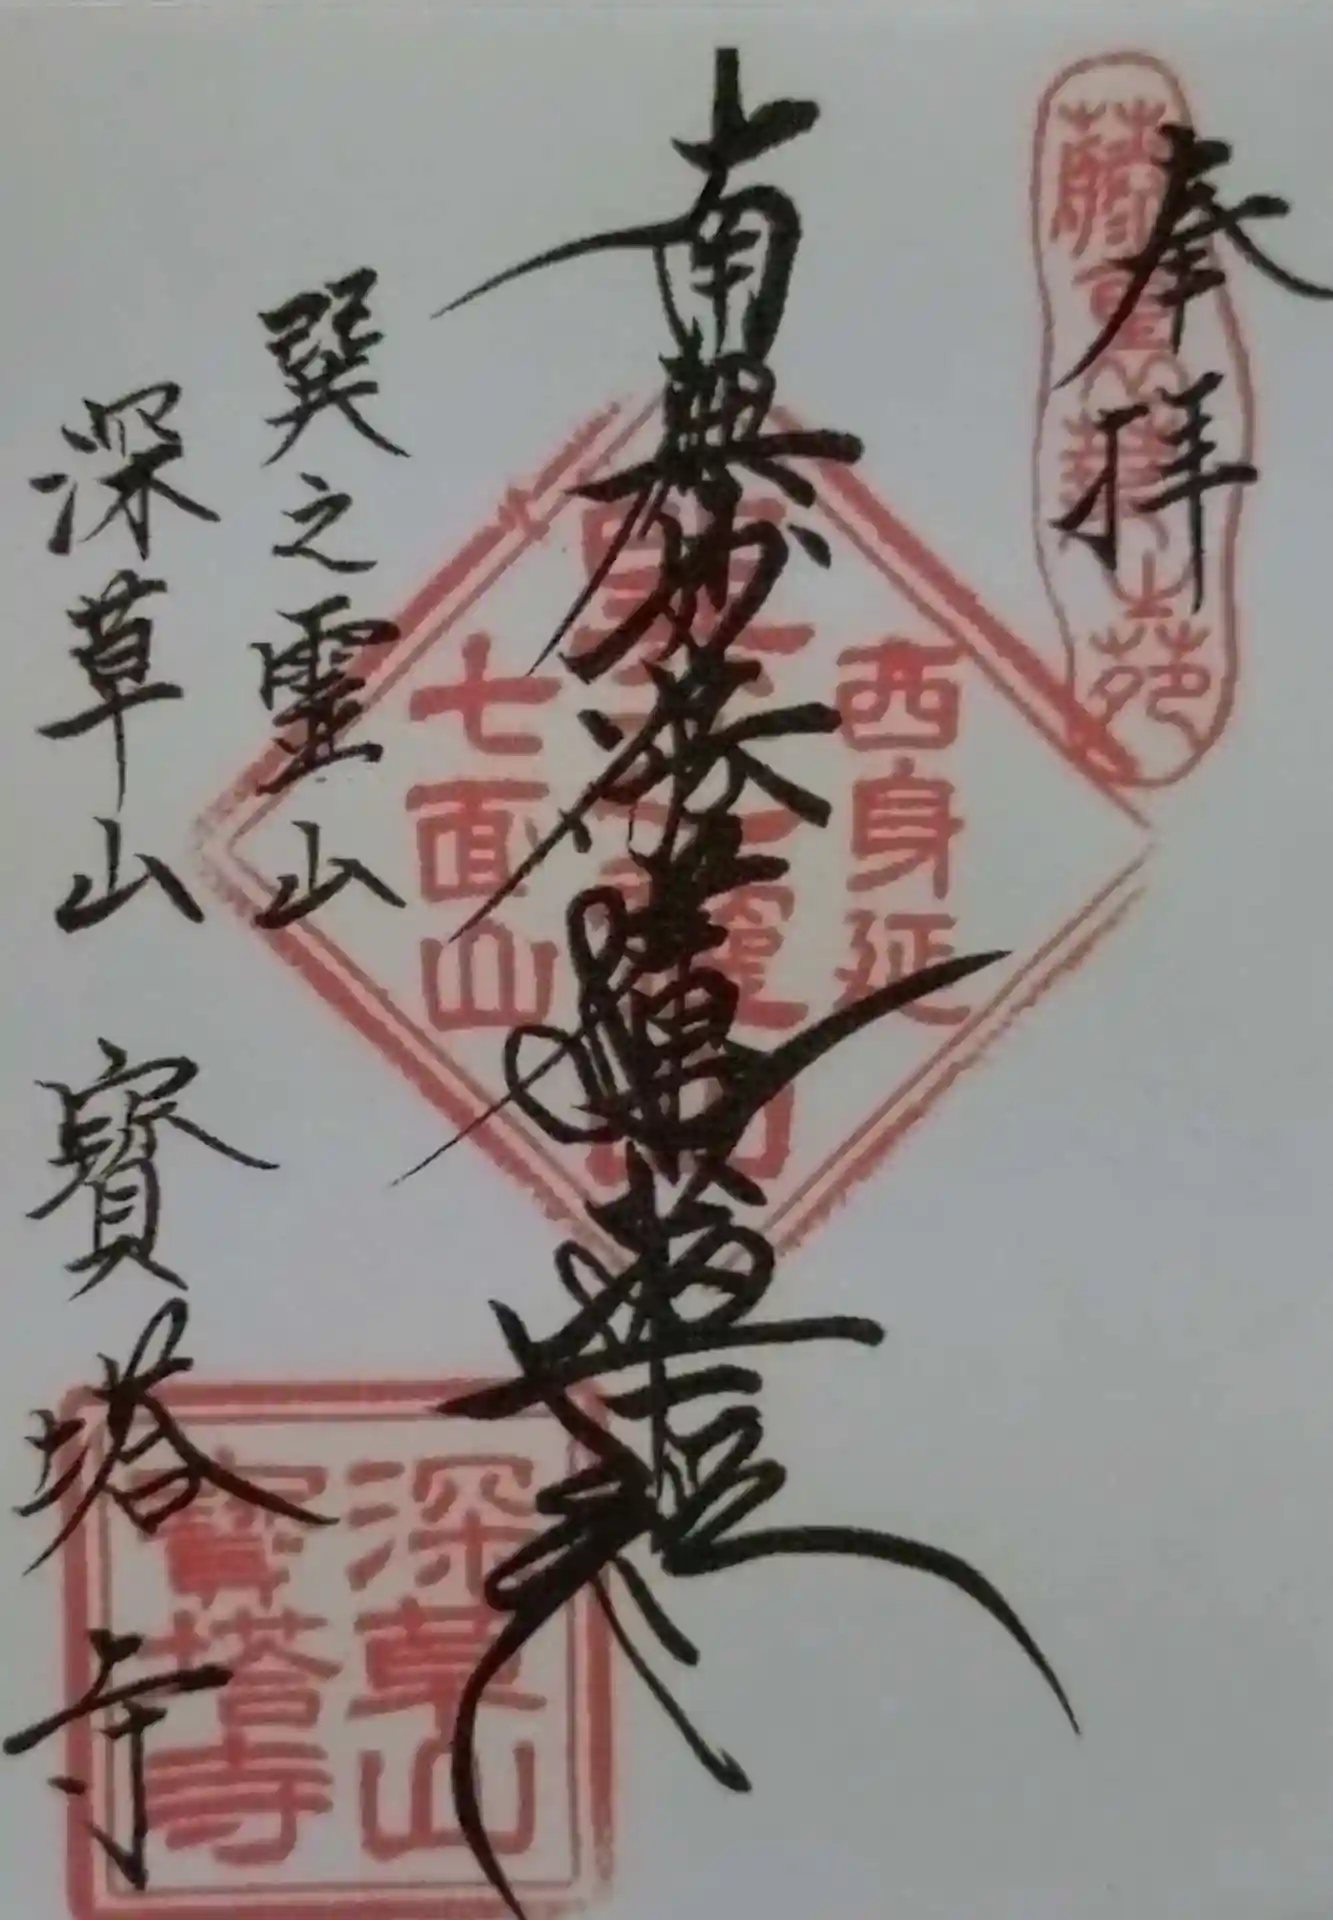 奉拝
南無妙法蓮華経
巽之霊山
深草山 寳塔寺
西身延
七面山
深草山
寳塔寺